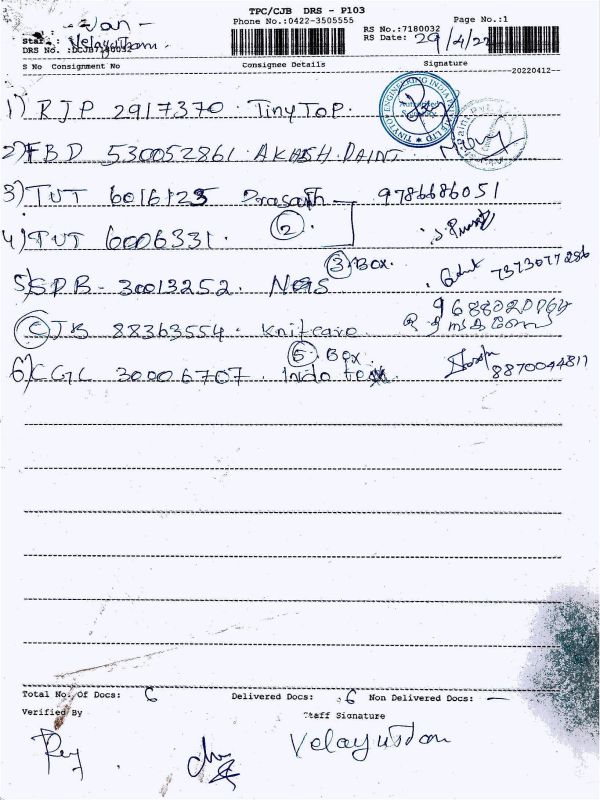 TPC/CJB DRS - P103
Phone No.:0422-3505555
Page No.:1
RS No.:7180032
RS Date: 29/4/22
Staff: Velayutham
DRS No.:DCJB7180032
S No Consignment No Consignee Details Signature
20220412--
1) RJP 2917370. TinyTOP.
2) FBD 530052861. AKASH.PAINT.
3) TUT 6016123 Prasath 9786686051
4) TUT 6006331. 2.
3 Box.
5) SPB- 30013252. NGS 7373077286
CJB 88363554. Knitcare.
5. Box.
6) CGL 30006707. Indo tex 8870044811
Total No. Of Docs: 6 Delivered Docs: 6 Non Delivered Docs: —
Verified By Staff Signature
Velayutham